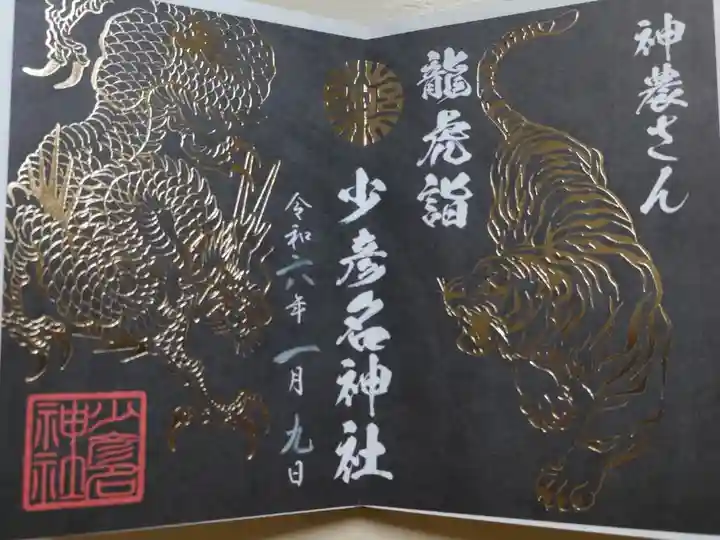 神農さん
龍虎詣
少彦名神社
令和六年一月九日
少彦名
神社